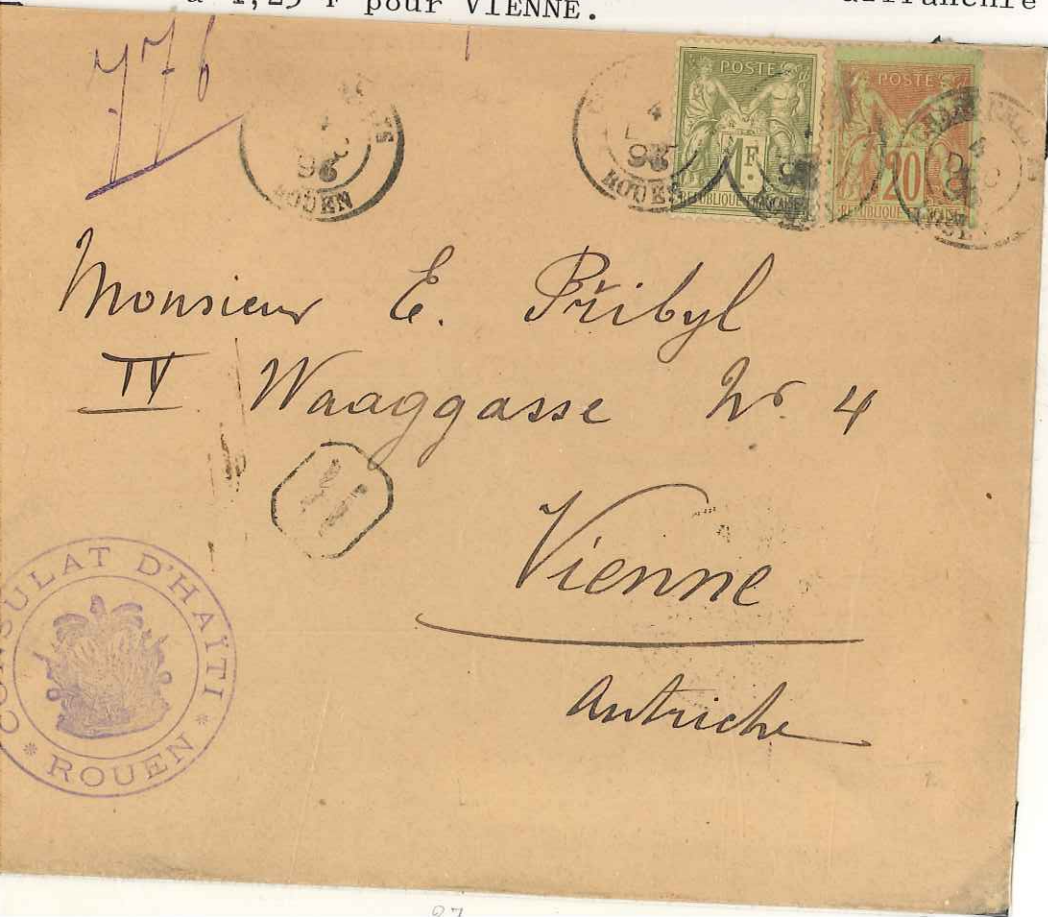 à 1,25 F pour VIENNE.
affranchie
776
ROUEN
96
ROUEN
POSTE
1F.
REPUBLIQUE FRANÇAISE
POSTE
20
REPUBLIQUE FRANÇAISE
4
Monsieur E. Přibyl
IV Waaggasse Nr. 4
Vienne
Autriche
CONSULAT D'HAÏTI
* ROUEN *